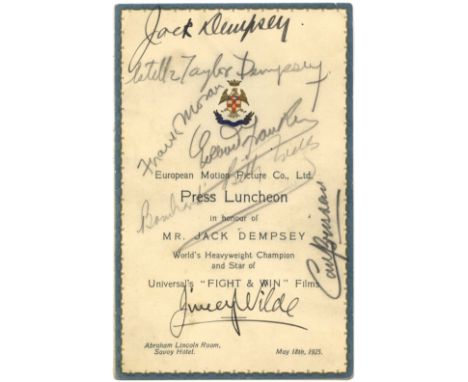 Jack Dempsey
Estelle Taylor Dempsey
Frank Moran
European Motion Picture Co., Ltd.
Press Luncheon
in honour of
Bombardier Billy Wells
MR. JACK DEMPSEY
World's Heavyweight Champion
and Star of
Universal's "FIGHT & WIN" Films
Jimmy Wilde
Abraham Lincoln Room,
Savoy Hotel.
May 18th, 1925.